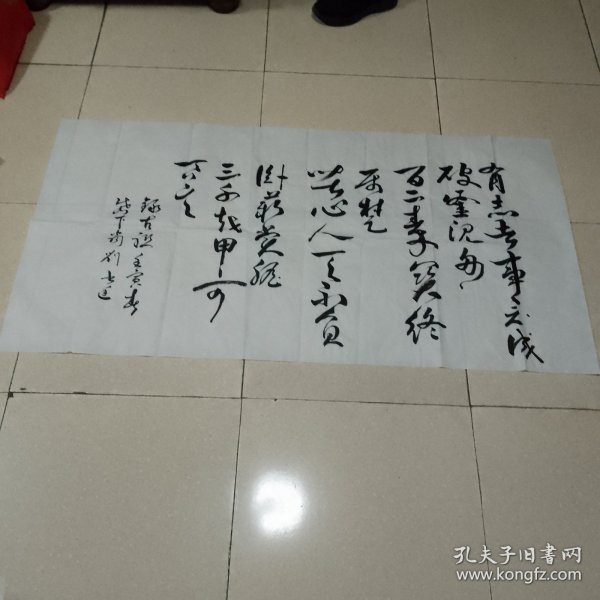 有志者事竟成
破釜沉舟
百二秦关终
属楚
苦心人天不负
卧薪尝胆
三千越甲可
吞吴
录古联壬寅春
刘
孔夫子旧书网
www.kongfz.com